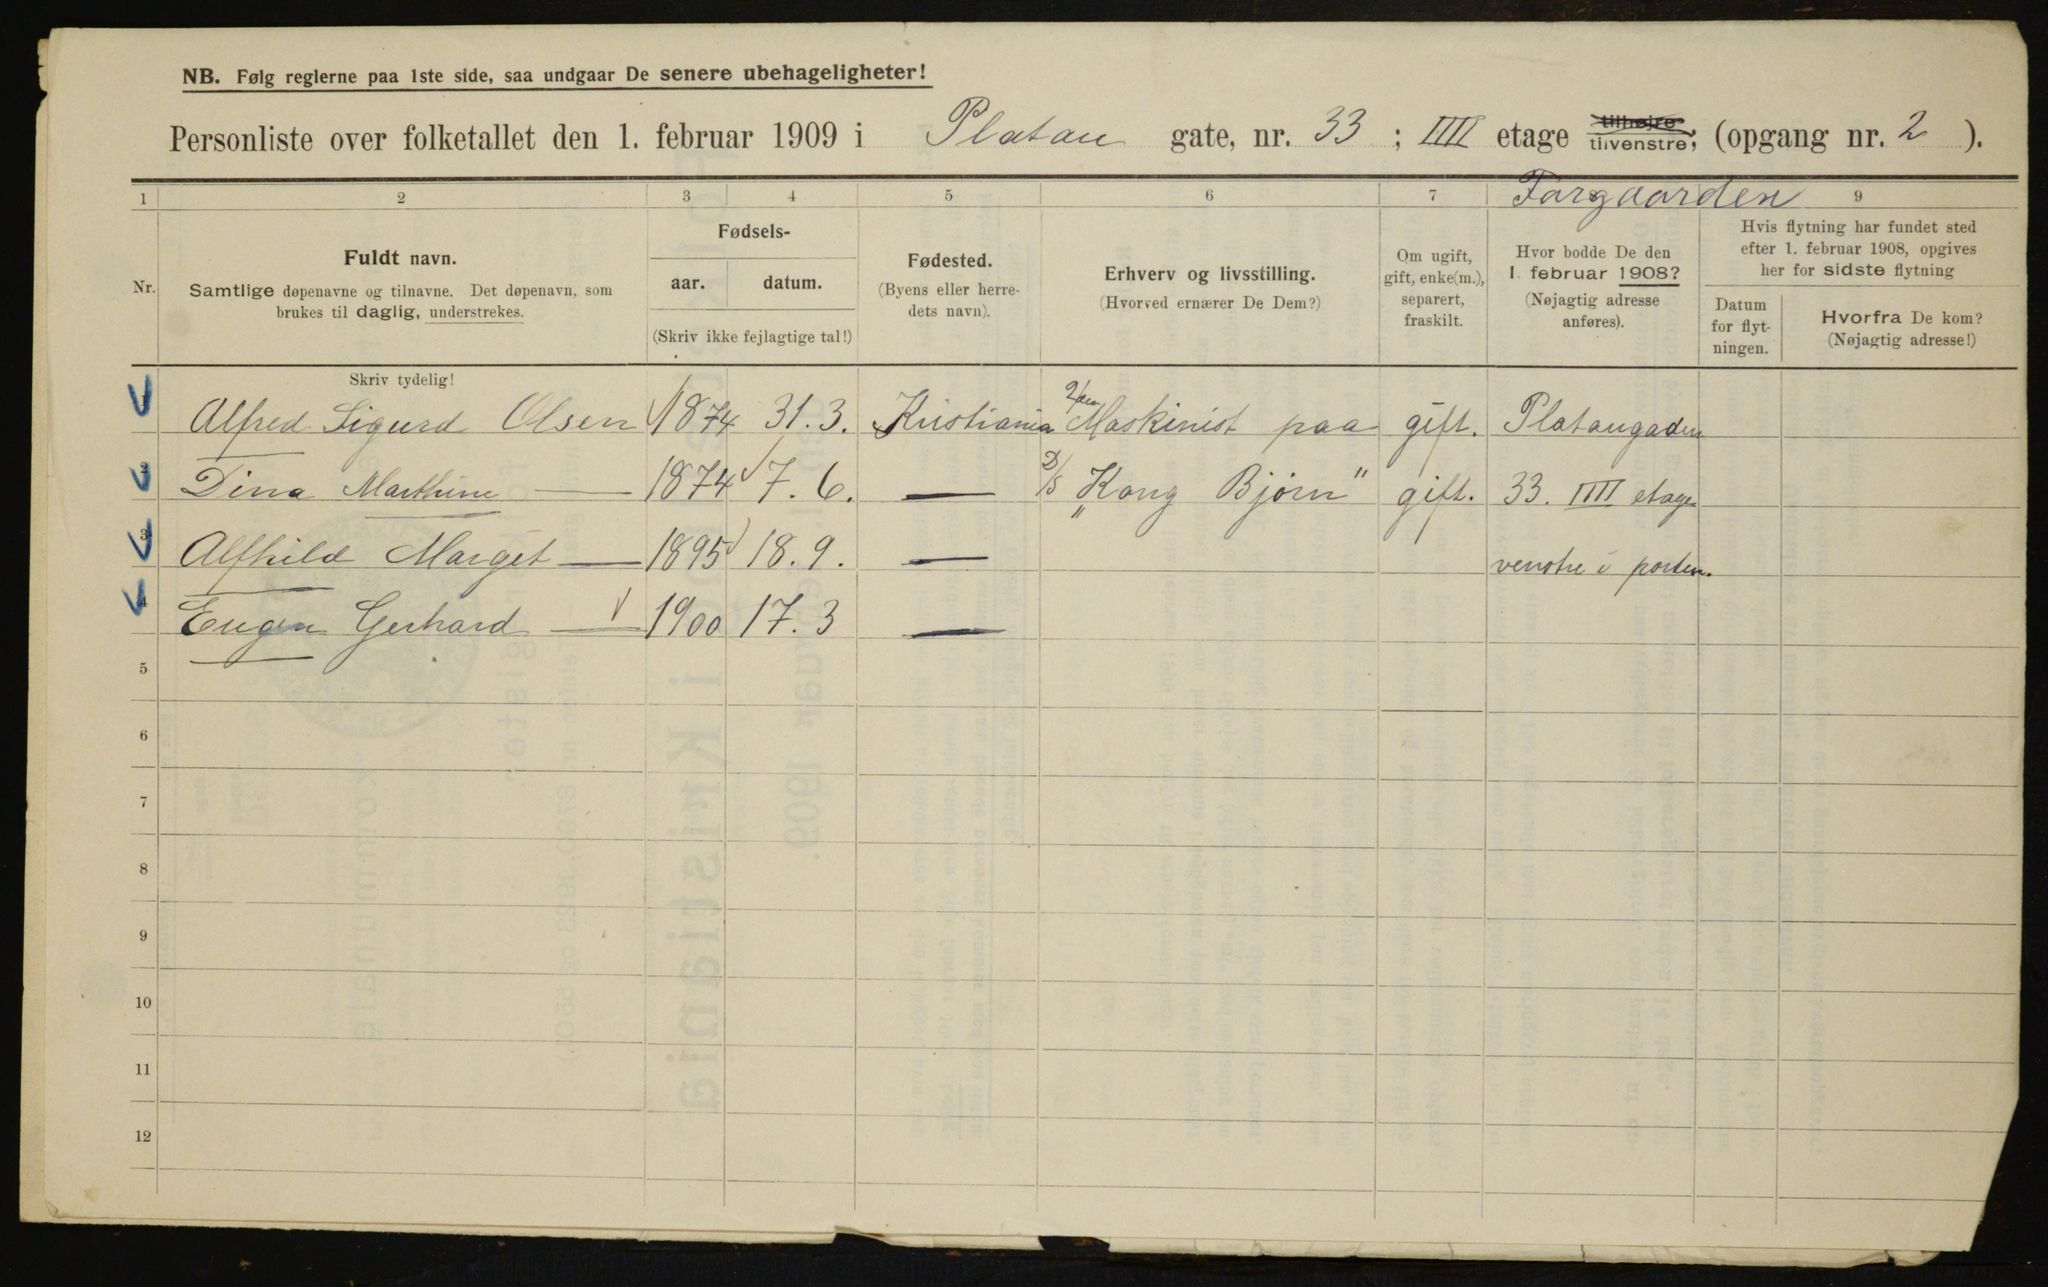 NB. Følg reglerne paa 1ste side, saa undgaar De senere ubehageligheter!
Personliste over folketallet den 1. februar 1909 i Platou gate, nr. 33 ; IIII etage tilhøjre tilvenstre, (opgang nr. 2 ).
Forgaarden
1 2 3 4 5 6 7 9
Nr.
Fuldt navn.
Samtlige døpenavne og tilnavne. Det døpenavn, som
brukes til daglig, understrekes.
Skriv tydelig!
Fødsels-
aar. datum.
(Skriv ikke fejlagtige tal!)
Fødested.
(Byens eller herre-
dets navn).
Erhverv og livsstilling.
(Hvorved ernærer De Dem?)
Om ugift,
gift, enke(m.),
separert,
fraskilt.
Hvor bodde De den
1. februar 1908?
(Nøjagtig adresse
anføres).
Hvis flytning har fundet sted
efter 1. februar 1908, opgives
her for sidste flytning
Datum
for flyt-
ningen.
Hvorfra De kom?
(Nøjagtig adresse!)
1 Alfred Sigurd Olsen 1874 31.3. Kristiania 2den Maskinist paa gift. Platougaden
2 Dina Marthine — 1874 7.6. — D/S "Kong Bjørn" gift. 33. IIII etage
3 Alfhild Marget — 1895 18.9. — venstre i porten.
4 Eugen Gerhard — 1900 17.3 —
5
6
7
8
9
10
11
12